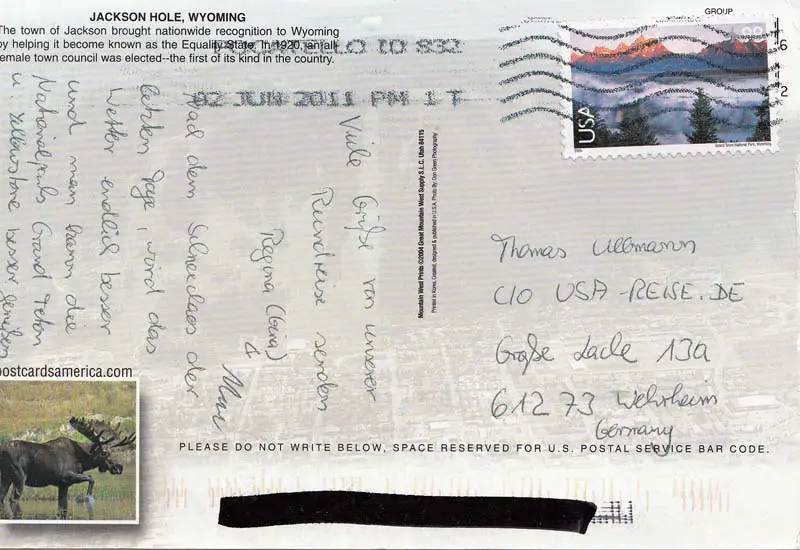 JACKSON HOLE, WYOMING
The town of Jackson brought nationwide recognition to Wyoming
by helping it become known as the Equality State. In 1920, an all
female town council was elected--the first of its kind in the country.
POCATELLO ID 832
02 JUN 2011 PM 1 T
GROUP
USA
Grand Teton National Park, Wyoming
Viele Grüße von unserer
Rundreise senden
Regina (Gina)
&
Nach dem Schneechaos der
letzten Tage, wird das
Wetter endlich besser
und man kann die
Nationalparks Grand Teton
u. Yellowstone besser genießen
Mountain West Prints ©2004 Great Mountain West Supply S.L.C. Utah 84115
Printed in Korea. Created, designed & published in U.S.A. Photo By: Don Green Photography
Thomas Ullmann
C/O USA-REISE.DE
Große Lache 13a
61273 Wehrheim
Germany
postcardsamerica.com
PLEASE DO NOT WRITE BELOW, SPACE RESERVED FOR U.S. POSTAL SERVICE BAR CODE.